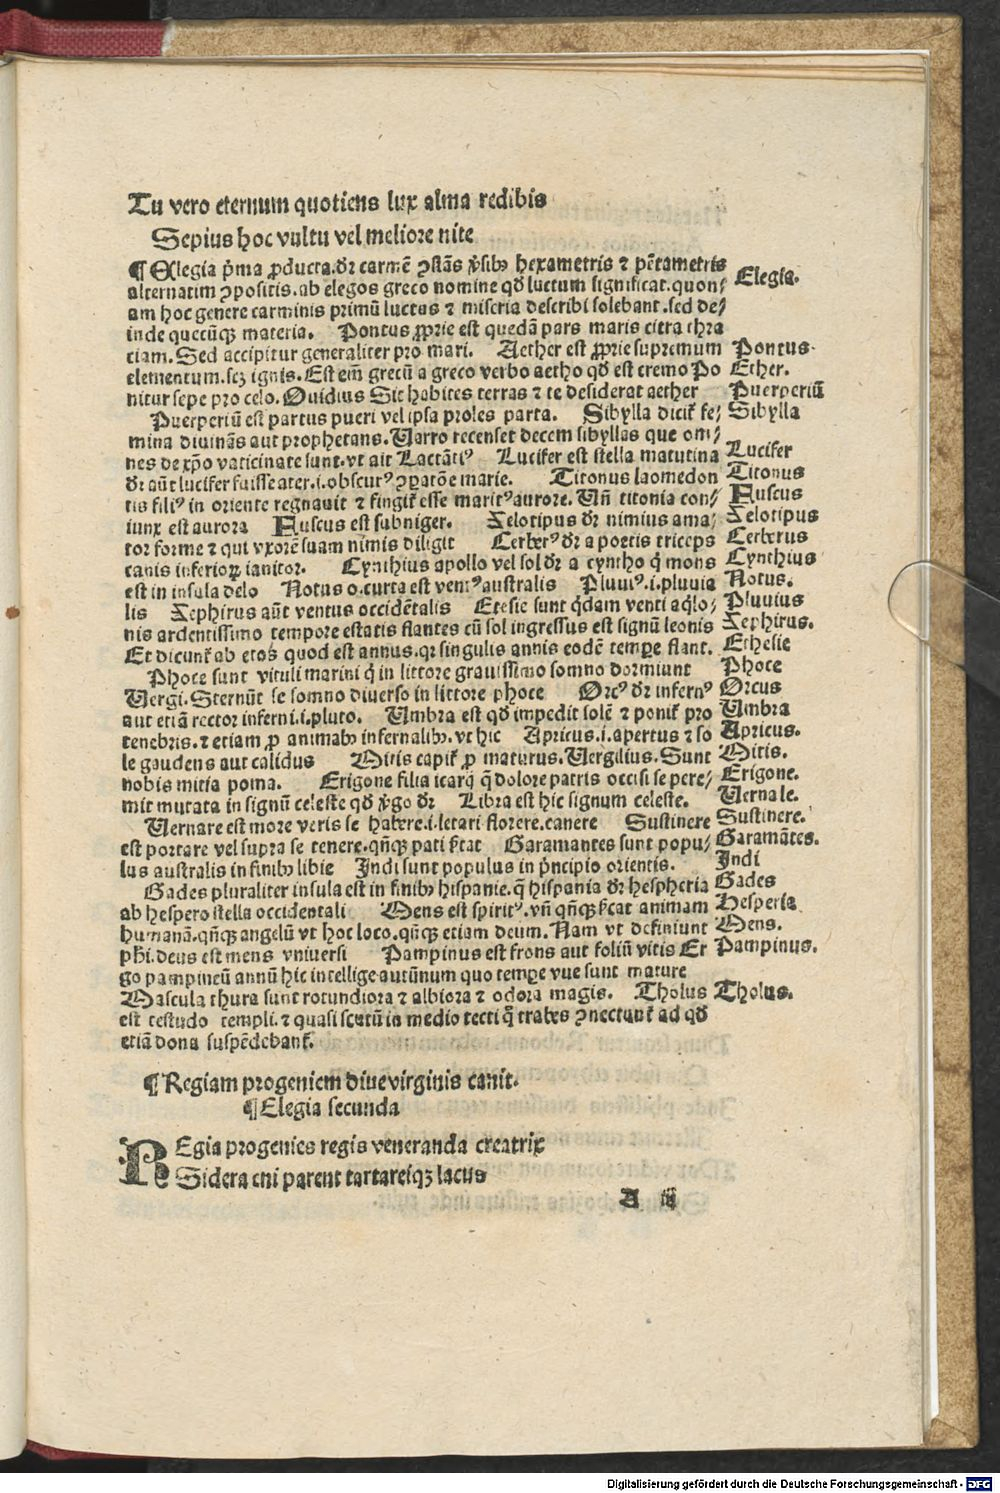 Tu vero eternum quotiens lux alma redibis
Sepius hoc vultu vel meliore nite
¶ Elegia p̄ma ꝓducta.dr̄ carmē ꝯstās ꝟsibꝫ hexametris ⁊ pētametris
alternatim ꝯpositis.ab elegos greco nomine qd̄ luctum significat.quon⸗
am hoc genere carminis primū luctus ⁊ miseria describi solebant.sed de⸗
inde quecūqꝫ materia. Pontus ꝓprie est quedā pars maris citra thra
ciam.Sed accipitur generaliter pro mari. Aether est ꝓprie supremum
elementum.scꝫ ignis.Est em̄ grecū a greco verbo aetho qd̄ est cremo Po
nitur sepe pro celo.Ouidius Sic habites terras ⁊ te desiderat aether
Puerperiū est partus pueri vel ipsa proles parta. Sibylla dicit̄ fe⸗
mina diuinās aut prophetans.Varro recenset decem sibyllas que om⸗
nes de xp̄o vaticinate sunt.vt ait Lactātiꝰ Lucifer est stella matutina
dr̄ aūt lucifer fuisse ater.i.obscurꝰ ꝯparatōe marie. Titonus laomedon
tis filiꝰ in oriente regnauit ⁊ fingit̄ esse maritꝰ aurore.Vn̄ titonia con⸗
iunx est aurora Fuscus est subniger. Zelotipus dr̄ nimius ama⸗
tor forme ⁊ qui vxorē suam nimis diligit Cerberꝰ dr̄ a poetis triceps
canis inferioꝝ ianitor. Cynthius apollo vel sol dr̄ a cyntho q̄ mons
est in insula delo Notus o.curta est ventꝰ australis Pluuiꝰ.i.pluuia
lis Zephirus aūt ventus occidētalis Etesie sunt q̄dam venti aq̄lo⸗
nis ardentissimo tempore estatis flantes cū sol ingressus est signū leonis
Et dicunt̄ ab etos quod est annus.qr singulis annis eodē tempe flant.
Phoce sunt vituli marini q̄ in littore grauissimo somno dormiunt
Vergi.Sternūt se somno diuerso in littore phoce Orcꝰ dr̄ infernꝰ
aut etiā rector inferni.i.pluto. Umbra est qd̄ impedit solē ⁊ ponit̄ pro
tenebris.⁊ etiam ꝓ animabꝫ infernalibꝫ.vt hic Apricus.i.apertus ⁊ so
le gaudens aut calidus Mitis capit̄ ꝓ maturus.Vergilius.Sunt
nobis mitia poma. Erigone filia icarij q̄ dolore patris occisi se pere⸗
mit mutata in signū celeste qd̄ ꝟgo dr̄ Libra est hic signum celeste.
Vernare est more veris se habere.i.letari florere.canere Sustinere
est portare vel supra se tenere.qn̄qꝫ pati s̄tat Garamantes sunt popu⸗
lus australis in finibꝫ libie Indi sunt populus in p̄ncipio orientis.
Gades pluraliter insula est in finibꝫ hispanie.q̄ hispania dr̄ hespheria
ab hespero stella occidentali Mens est spiritꝰ.vn̄ qn̄qꝫ s̄cat animam
humanā.qn̄qꝫ angelū vt hoc loco.qn̄qꝫ etiam deum.Nam vt definiunt
phi.deus est mens vniuersi Pampinus est frons aut foliū vitis Er
go pampineū annū hic intellige autūnum quo tempe vue sunt mature
Mascula thura sunt rotundiora ⁊ albiora ⁊ odora magis. Tholus
est testudo templi.⁊ quasi scutū in medio tecti q̄ trabes ꝯnectunt̄ ad qd̄
etiā dona suspēdebant̄.
Elegia.
Pontus.
Ether.
Puerperiū
Sibylla
Lucifer
Titonus
Fuscus
Zelotipus
Cerberus
Cynthius
Notus.
Pluuius
Zephirus.
Ethesie
Phoce
Orcus
Umbra
Apricus.
Mitis.
Erigone.
Vernale.
Sustinere.
Garamātes.
Indi
Gades
Hesperia
Mens.
Pampinus.
Tholus.
¶ Regiam progeniem diue virginis canit.
¶ Elegia secunda
REgia progenies regis veneranda creatrix
Sidera cui parent tartareiqꝫ lacus
A iii
Digitalisierung gefördert durch die Deutsche Forschungsgemeinschaft - DFG